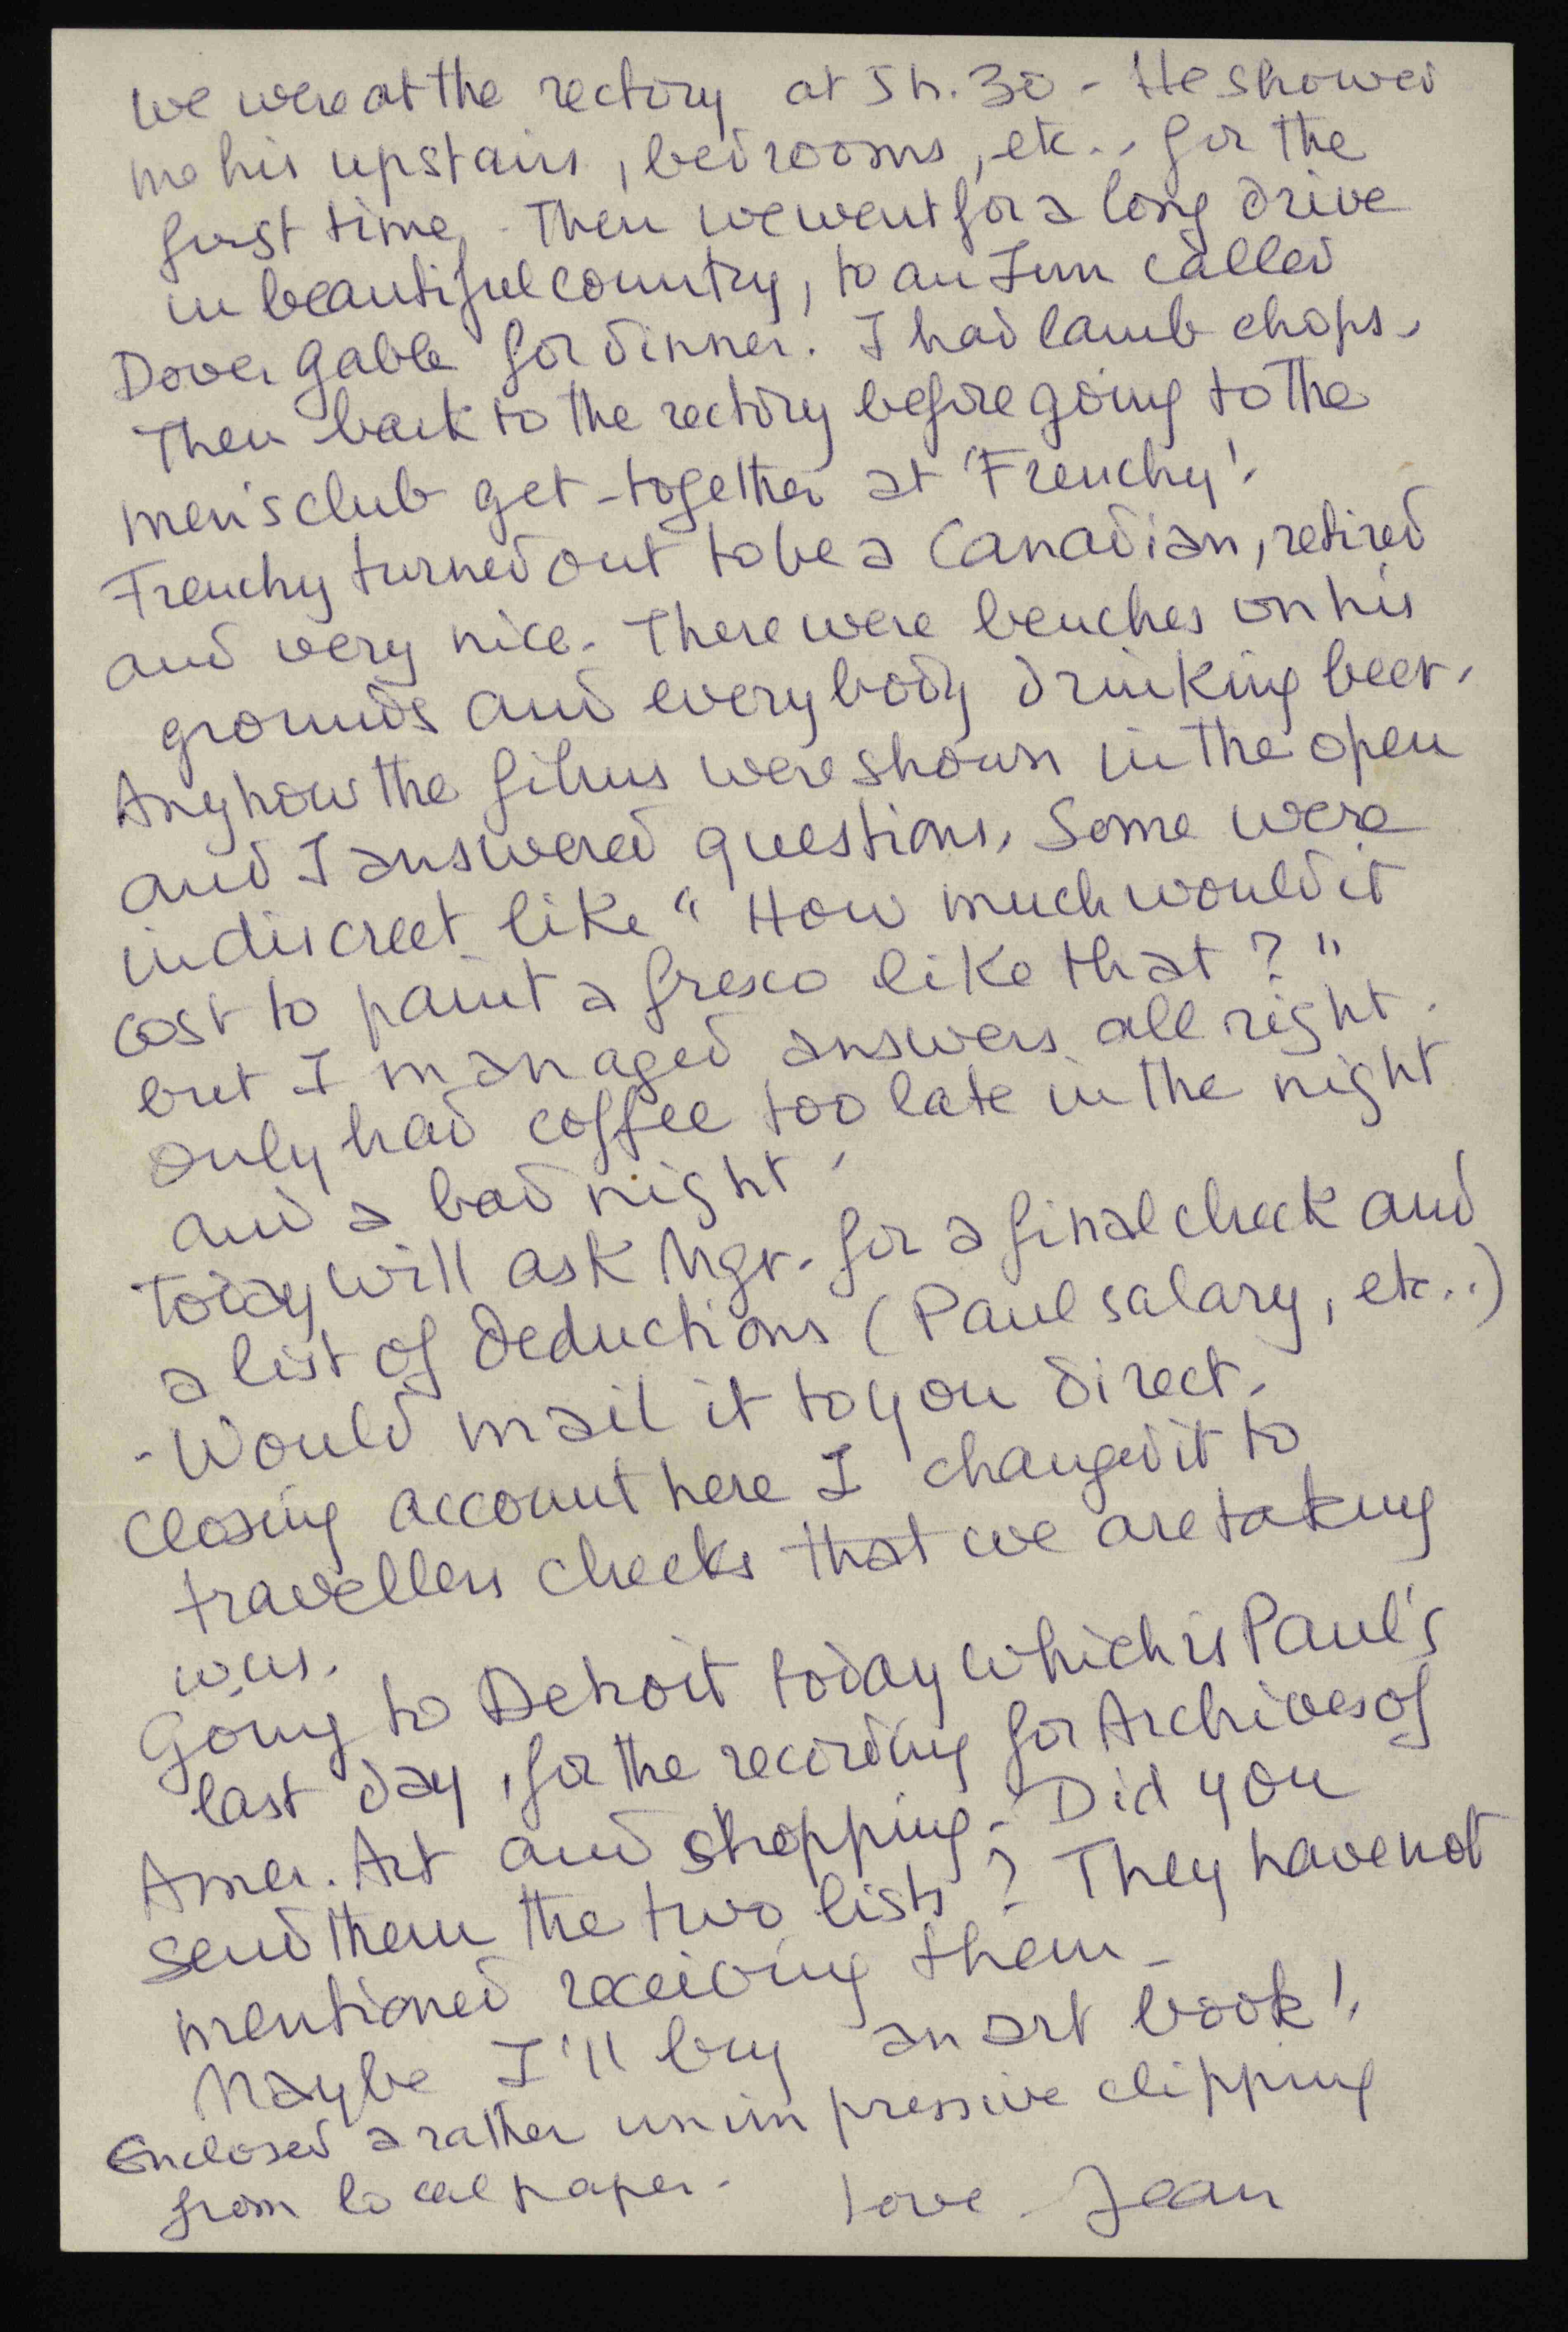 We were at the rectory at 5 h. 30 - He showed
me his upstairs, bedrooms, etc.. for the
first time. Then we went for a long drive
in beautiful country, to an Inn called
Dover gable for dinner. I had lamb chops.
Then back to the rectory before going to the
men's club get-together at 'Frenchy'.
Frenchy turned out to be a Canadian, retired
and very nice. There were benches on his
grounds and everybody drinking beer.
Anyhow the films were shown in the open
and I answered questions. Some were
indiscreet like " How much would it
cost to paint a fresco like that ? "
but I managed answers all right.
Only had coffee too late in the night
and a bad night.
Today will ask Mgr. for a final check and
a list of deductions (Paul salary, etc..)
- Would mail it to you direct.
Closing account here I changed it to
travellers checks that we are taking
w. us.
Going to Detroit today which is Paul's
last day, for the recording for Archives of
Amer. Art and shopping. Did you
send them the two lists ? They have not
mentioned receiving them -
Maybe I'll buy an art book !.
Enclosed a rather unimpressive clipping
from local paper.
Love. Jean